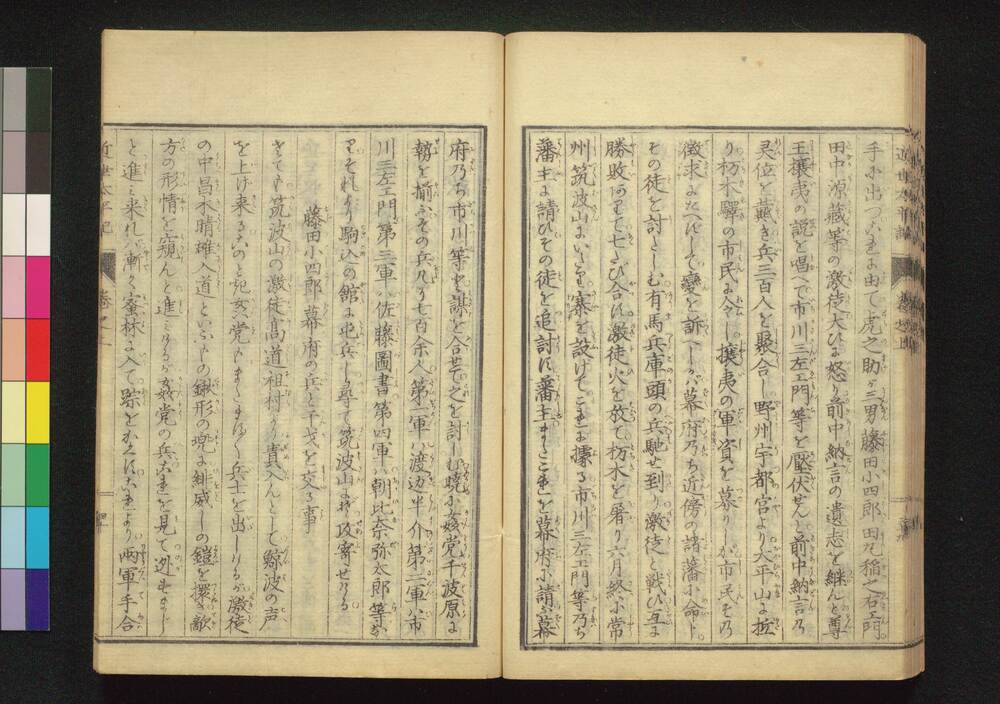 手に出つこれに由て虎之助が三男藤田小四郎田丸稲之右エ門
田中源蔵等の激徒大ひに怒り前中納言の遺志を継んと尊
王攘夷の説を唱へて市川三左エ門等を壓伏せんと前中納言乃
灵位を戴き兵三百人を聚合し野州宇都宮より大平山に拠
り栃木驛の市民に令し攘夷の軍資を募りしが市民その
徴求にたへずして變を訴へしが幕府乃ち近傍の諸藩に命し
その徒を討たしむ有馬兵庫頭の兵馳せ到り激徒と戦ひ互に
勝敗ありて七たび合す激徒火を放て栃木を屠り六月終に常
州筑波山にいたり寨を設けてこれに據る市川三左エ門等乃ち
藩主に請ひその徒を追討す藩主またこれを幕府に請ふ幕
府乃ち市川等と謀を合せて之を討しむ暁に姦党千波原に
勢を揃ふその兵凡そ七百余人第一軍ハ渡辺半介第二軍ハ市
川三左エ門第三軍ハ佐藤圖書第四軍ハ朝比奈弥太郎等な
りそれより駒込の館に屯兵し尋て筑波山に攻寄せける
藤田小四郎幕府の兵と干戈を交る事
さても筑波山の激徒髙道祖村より責入んとして鯨波の声
を上け来るのと死姦党もまたまはく兵士を出しけるが激徒
の中昌木晴雄入道といふもの鍬形の兜に緋威しの鎧を擐き敵
方の形情を窺んと進みけるが姦党の兵これを見て迯もまし
と進み来れハ漸く蜜林に入て踪をかくすこれより両軍手合
近世太平記